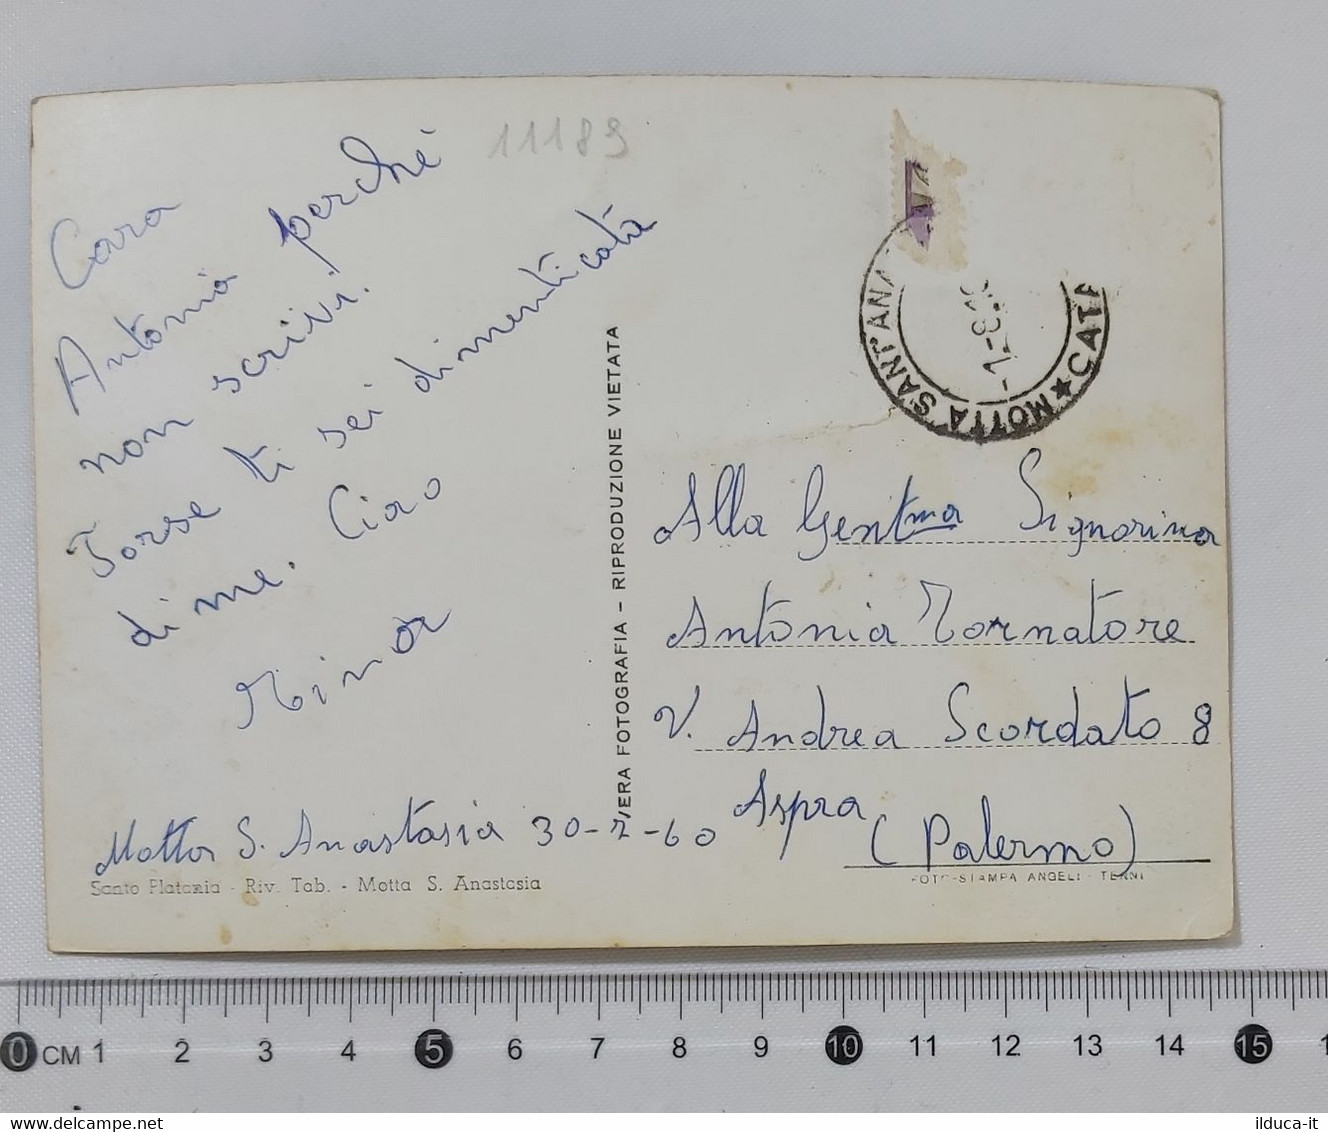 11189
Cara
Antonia perché
non scrivi.
Forse ti sei dimenticata
di me. Ciao
Motta S. Anastasia 30-7-60
Santo Platania - Riv. Tab. - Motta S. Anastasia
VERA FOTOGRAFIA - RIPRODUZIONE VIETATA
MOTTA SANT'ANA
CATA
-1-8
Alla Gentma Signorina
Antonia Tornatore
V. Andrea Scordato 8
Aspra
(Palermo)
FOTO-STAMPA ANGELI - TERNI
0 CM 1 2 3 4 5 6 7 8 9 10 11 12 13 14 15 1
www.delcampe.net
ilduca-it